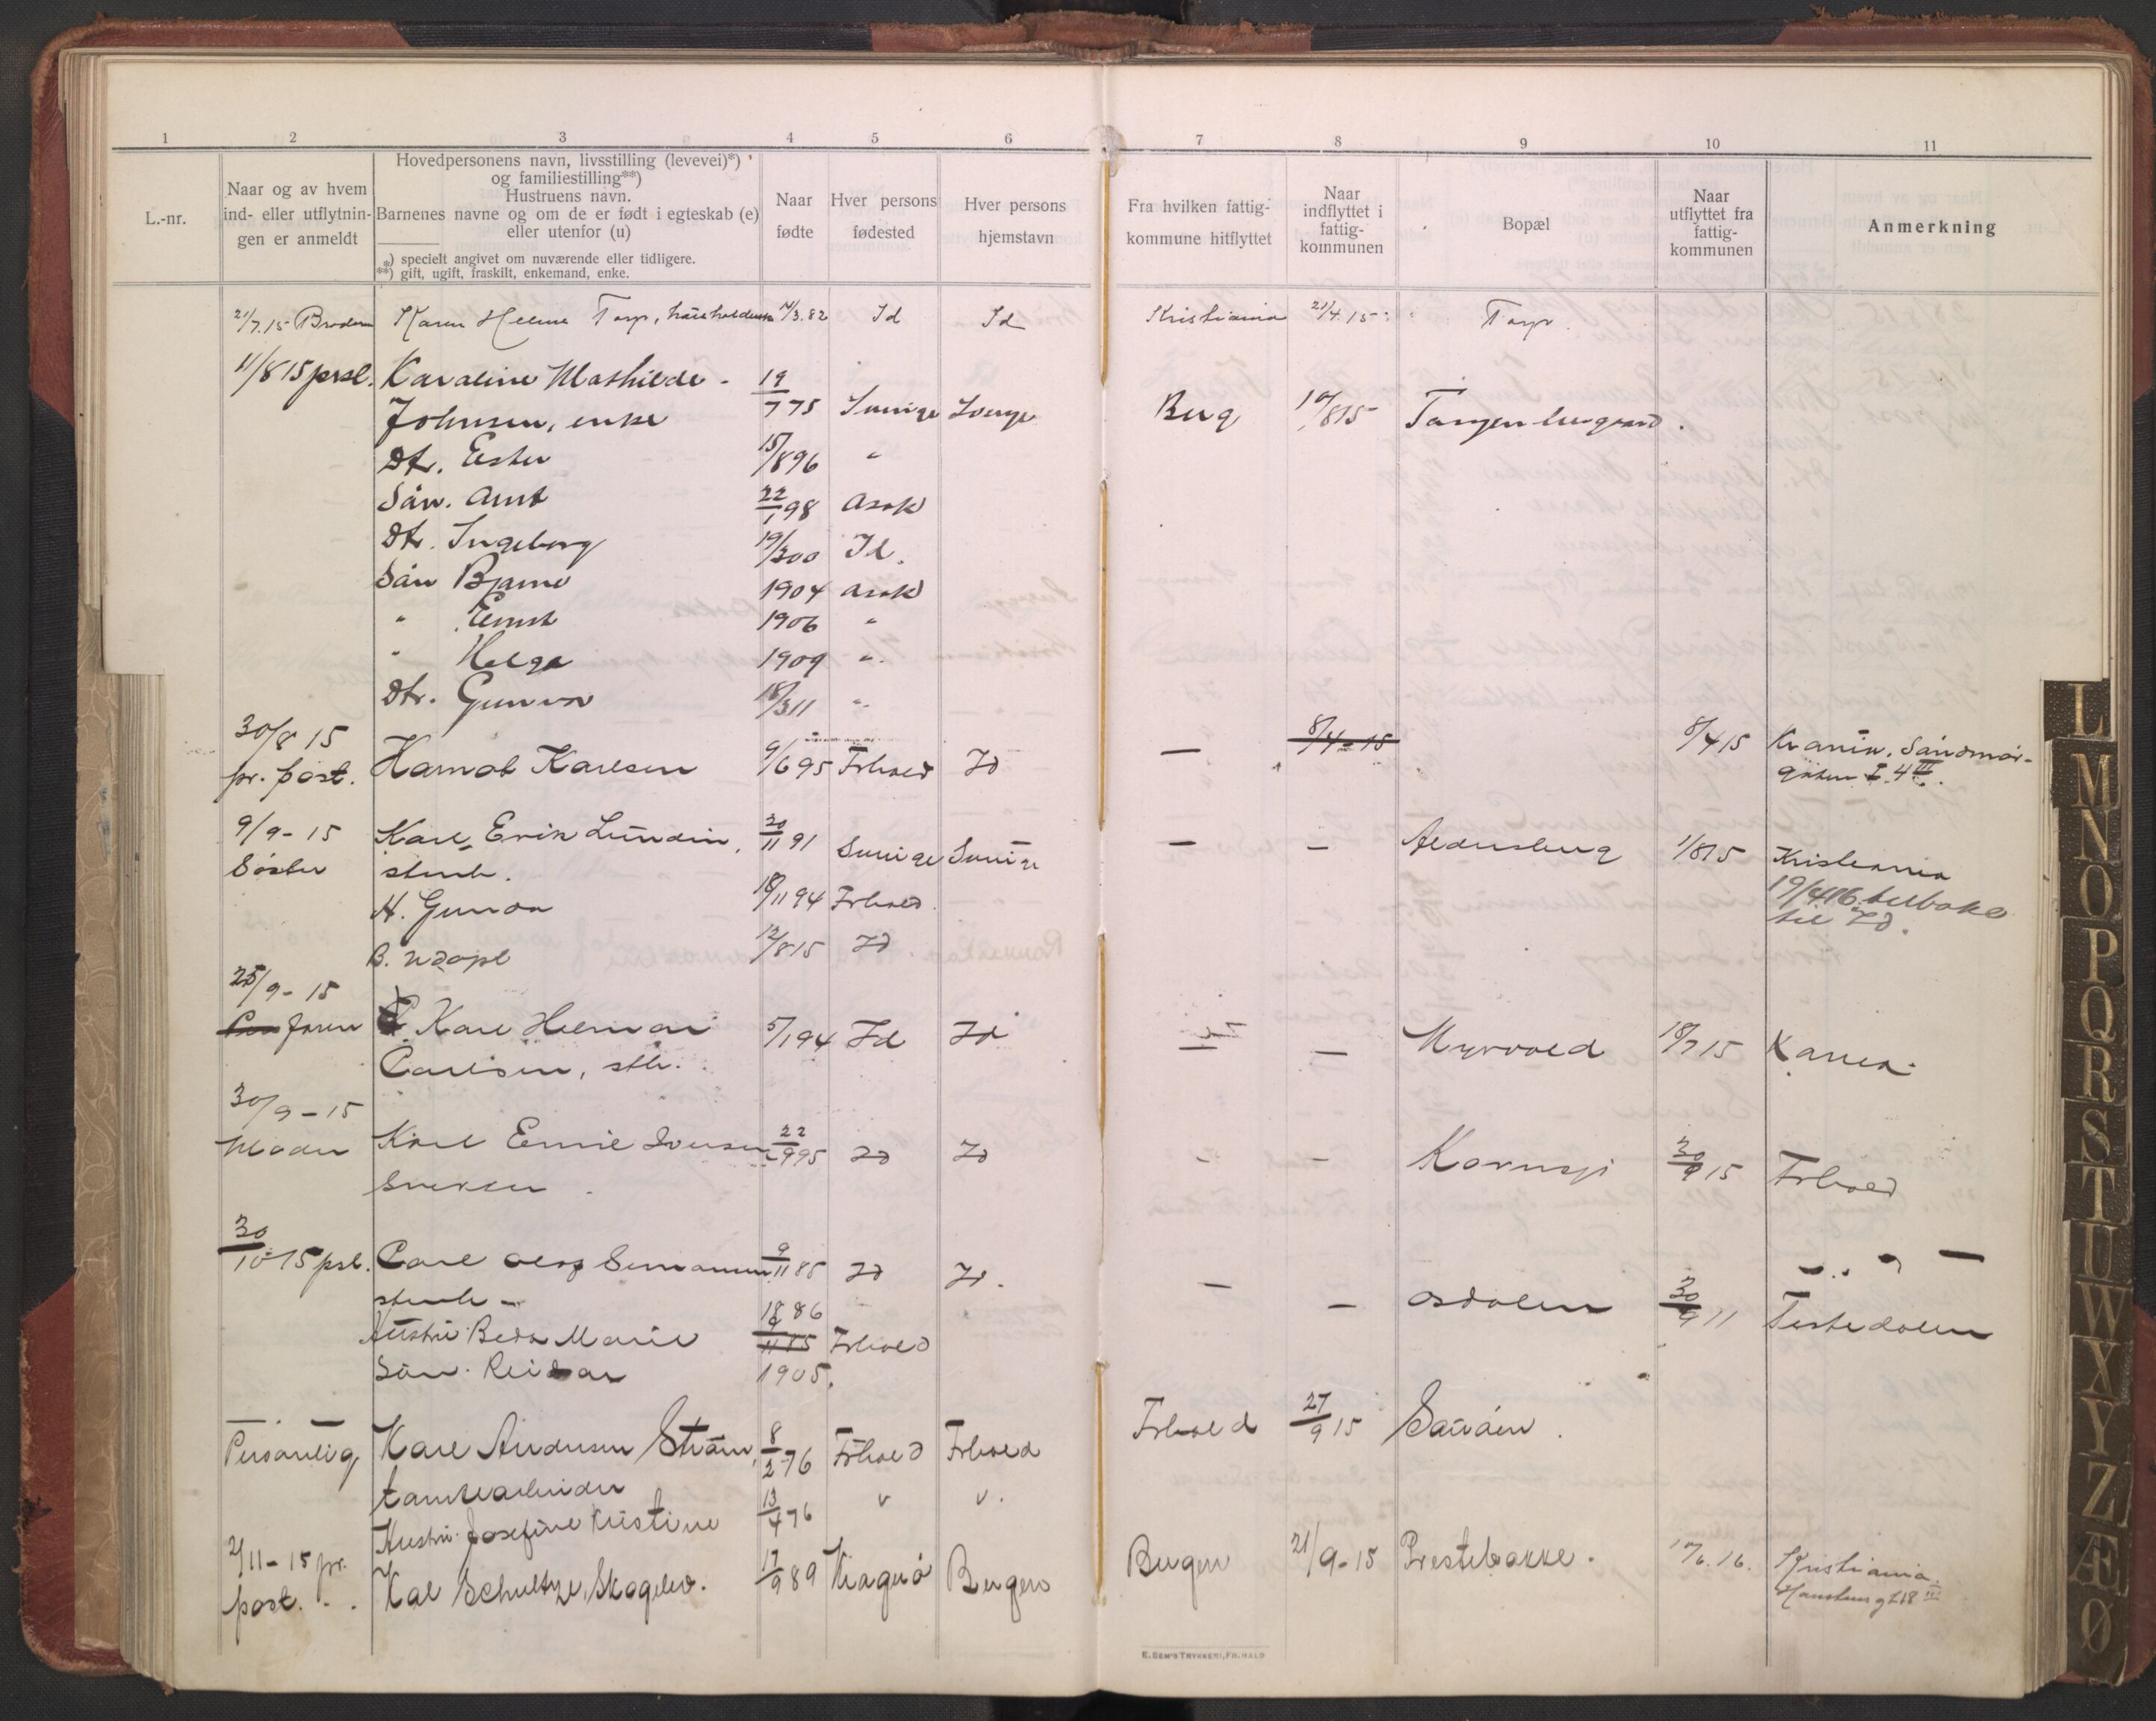 1 2 3 4 5 6 7 8 9 10 11
L.-nr.
Naar og av hvem
ind- eller utflytnin-
gen er anmeldt
Hovedpersonens navn, livsstilling (levevei)*)
og familiestilling**)
Hustruens navn.
Barnenes navne og om de er født i egteskab (e)
eller utenfor (u)
*) specielt angivet om nuværende eller tidligere.
**) gift, ugift, fraskilt, enkemand, enke.
Naar
fødte
Hver persons
fødested
Hver persons
hjemstavn
Fra hvilken fattig-
kommune hitflyttet
Naar
indflyttet i
fattig-
kommunen
Bopæl
Naar
utflyttet fra
fattig-
kommunen
Anmerkning
21/7.15 Broderen Karen Helene Torp, husholderske /3.82 Id Id Kristiania 21/4.15 Torp.
11/8 15 prsl. Karoline Mathilde 19/7 75
Johnsen, enke Sverige Sverige Berg 10/8 15
Dt. Ester 15/8 96 "
Sön. Arnt 22/1 98 Asak
Dt. Ingeborg 19/3 00 Id.
Sön Bjarne 1904 Asak
" Ernst 1906 "
" Helge 1909 "
Dtr. Gunvor 18/3 11 "
30/8 15
pr. post. Harnot Karlsen 9/6 95 Frhald Id — 8/4-15 8/4 15
9/9-15 Karl Erik Lundin, 20/11 91 Sverige Sverige — — 1/8 15 Kristiania
Söster stenh. 19/4 16 tilbake
H. Gunda 18/11 94 Frhald til Id.
B. Udöpt 12/8 15 Id
25/9-15
faren Karl Helmar 5/1 94 Id Id — — Myrvold 18/7 15 Krania.
Carlsen, sth.
30/9-15
Moder Karl Emil Iversen 22/9 95 Id Id - - Kornsjø 30/9 15 Frhald
Snekker
30/10-15 prl. Carl Olof Simonsen 9/11 85 Id Id. — — Osdalen 30/9 11 Tistedalen
stenh - 18 86
Hustru Beda Marie Frhald
Sön. Reidar 1905.
Personlig Karl Andersen Ström, 8/2 76 Frhald Frhald Frhald 27/9 15
tomtearbeider
Hustru. Josefine Kristine 13/4 76 " "
2/11-15 pr.
post. Kal Schultze, Skogelev. 17/9 89 Kragerö Bergen Bergen 21/9-15 Prestebakke. 6.16. Kristiania.
E. SEM'S TRYKKERI, FR.HALD
L
M
N
O
P
Q
R
S
T
U
W
X
Y
Z
Æ
Ø